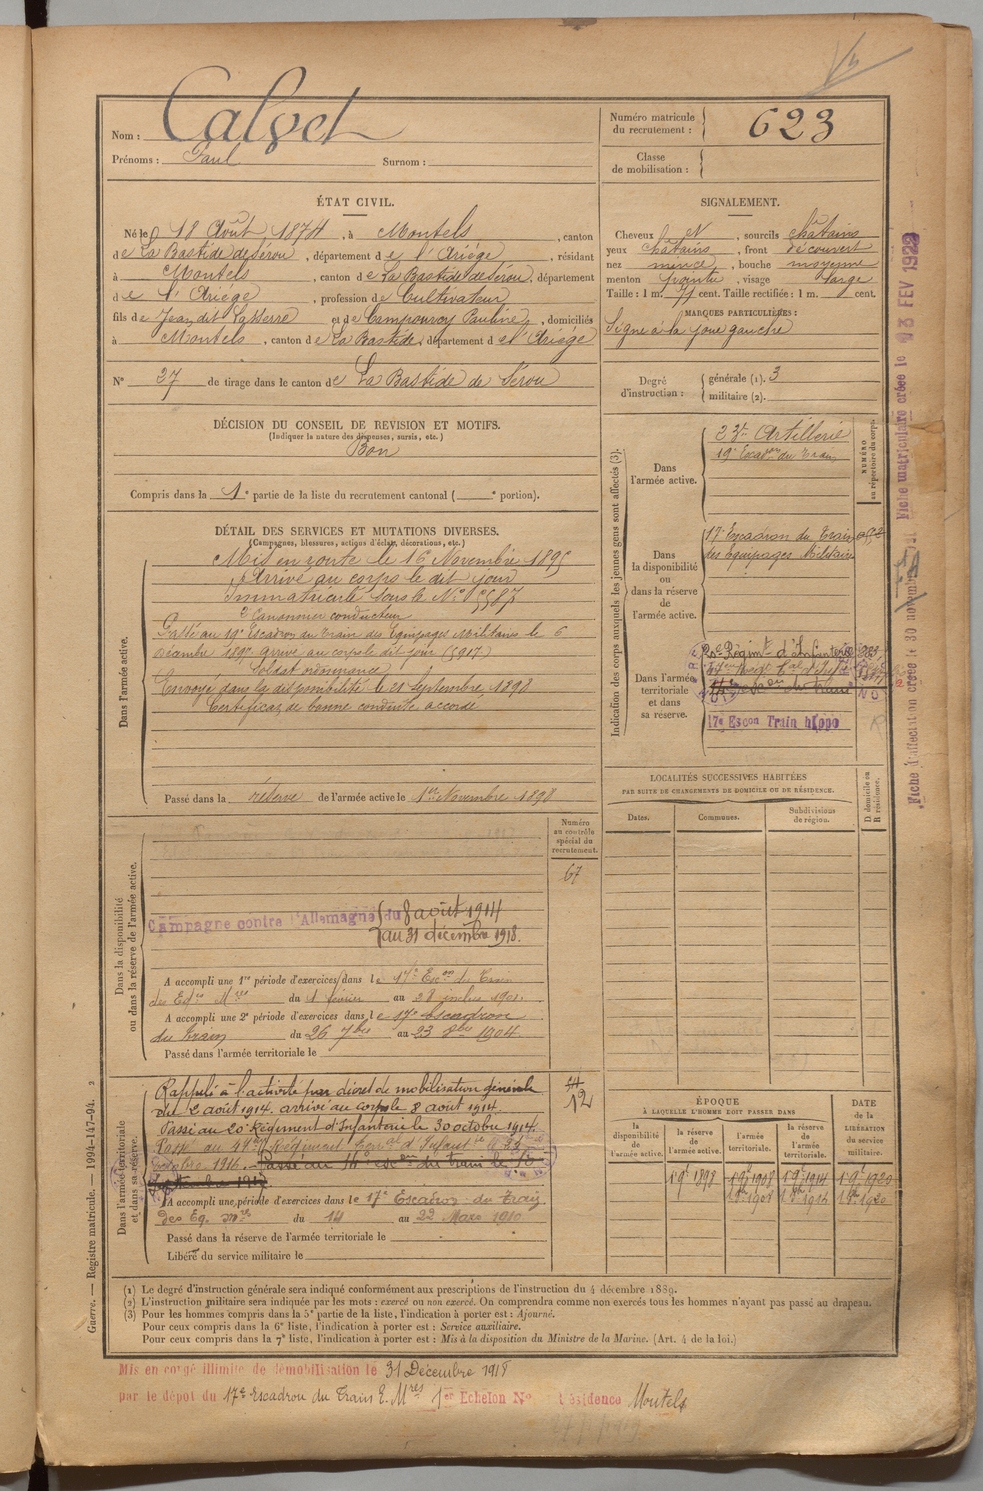 Nom : Calvet
Prénoms : Paul Surnom :
Numéro matricule du recrutement : 623
Classe de mobilisation :
ÉTAT CIVIL.
Né le 18 Août 1874, à Montels, canton
de La Bastide de Sérou, département de l'Ariége, résidant
à Montels, canton de La Bastide de Sérou, département
de l'Ariége, profession de Cultivateur
fils de Jean dit Lasserre et de Campourcy Pauline, domiciliés
à Montels, canton de La Bastide, département de l'Ariége
N° 27 de tirage dans le canton de La Bastide de Sérou
SIGNALEMENT.
Cheveux et, sourcils châtains
yeux châtains, front découvert
nez mince, bouche moyenne
menton pointu, visage large
Taille : 1 m. 71 cent. Taille rectifiée : 1 m. cent.
MARQUES PARTICULIÈRES :
Signe à la joue gauche
Degré d'instruction : générale (1). 3
militaire (2).
DÉCISION DU CONSEIL DE REVISION ET MOTIFS.
(Indiquer la nature des dispenses, sursis, etc.)
Bon
Compris dans la 1e partie de la liste du recrutement cantonal ( e portion).
DÉTAIL DES SERVICES ET MUTATIONS DIVERSES.
(Campagnes, blessures, actions d'éclat, décorations, etc.)
Dans l'armée active.
Mis en route le 16 Novembre 1895
Arrivé au corps le dit jour
Immatriculé sous le N° 5587
2e Canonnier conducteur
Passé au 19e Escadron du Train des Equipages Militaires le 6
Décembre 189 Arrivé au corps le dit jour (5917)
Soldat ordonnance
Envoyé dans la disponibilité le 21 Septembre 1898
Certificat de bonne conduite accordé
Passé dans la réserve de l'armée active le 1er Novembre 1898
Indication des corps auxquels les jeunes gens sont affectés (3).
NUMÉRO au répertoire du corps.
Dans l'armée active.
23e Artillerie
19e Escadron du Train
Dans la disponibilité ou dans la réserve de l'armée active.
17e Escadron du Train
des Equipages Militaires
Dans l'armée territoriale et dans sa réserve.
20e Régimt d'Infanterie
17e Escon Train hippo
LOCALITÉS SUCCESSIVES HABITÉES
PAR SUITE DE CHANGEMENTS DE DOMICILE OU DE RÉSIDENCE.
Dates. Communes. Subdivisions de région. D domicile ou R résidence.
Dans la disponibilité ou dans la réserve de l'armée active.
Numéro au contrôle spécial du recrutement.
67
Campagne contre l'Allemagne du 8 août 1914
au 31 décembre 1918.
A accompli une 1re période d'exercices dans le 17e Escon du Train
des Eqes Mres du 1 février au 28 inclus 1901.
A accompli une 2e période d'exercices dans le 17e Escadron
du Train du 26 7bre au 23 8bre 1904.
Passé dans l'armée territoriale le
Dans l'armée territoriale et dans sa réserve.
Rappelé à l'activité par décret de mobilisation générale
du 2 août 1914. arrivé au corps le 8 août 1914.
Passé au 20e Régiment d'Infanterie le 30 octobre 1914.
Octobre 1916. Passé au 14e escon du train le
12
A accompli une période d'exercices dans le 17e Escadron du Train
des Eq. Mres du 14 au 22 Mars 1910
Passé dans la réserve de l'armée territoriale le
Libéré du service militaire le
ÉPOQUE
À LAQUELLE L'HOMME DOIT PASSER DANS
DATE de la LIBÉRATION du service militaire.
la disponibilité de l'armée active. la réserve de l'armée active. l'armée territoriale. la réserve de l'armée territoriale.
1 9e 1898 1 9e 1908 1 9e 1914 1 9e 1920
(1) Le degré d'instruction générale sera indiqué conformément aux prescriptions de l'instruction du 4 décembre 1889.
(2) L'instruction militaire sera indiquée par les mots : exercé ou non exercé. On comprendra comme non exercés tous les hommes n'ayant pas passé au drapeau.
(3) Pour les hommes compris dans la 5e partie de la liste, l'indication à porter est : Ajourné.
Pour ceux compris dans la 6e liste, l'indication à porter est : Service auxiliaire.
Pour ceux compris dans la 7e liste, l'indication à porter est : Mis à la disposition du Ministre de la Marine. (Art. 4 de la loi.)
Mis en congé illimité de démobilisation le 31 Décembre 1918
par le dépôt du 17e Escadron du Train E. Mres 1er Echelon N° résidence Montels
Guerre. — Registre matricule. — 1994-147-94. 2
Fiche matriculaire créée le 13 FEV 1922
Fiche d'affectation créée le 30 novembre